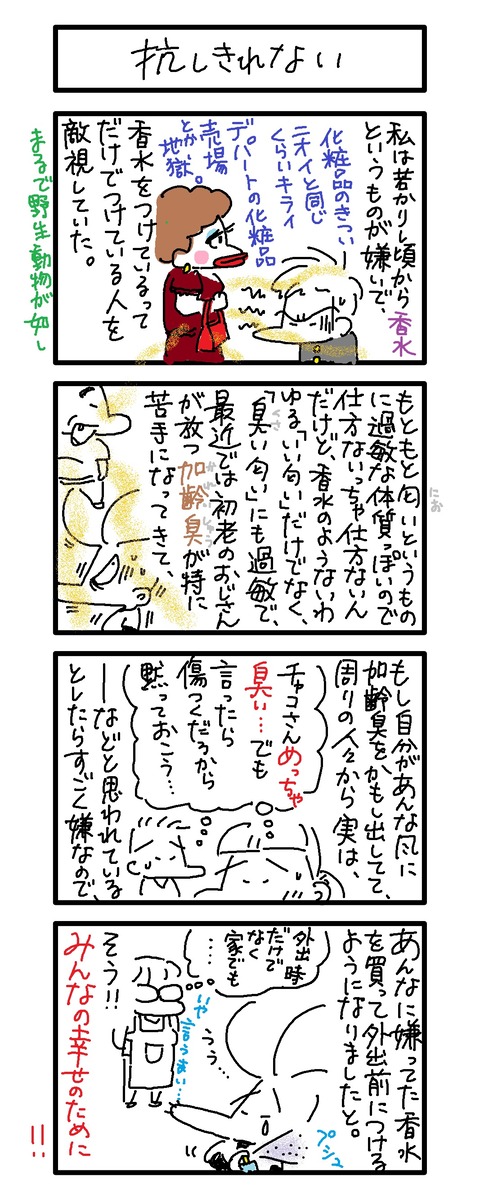 抗しきれない
私は若かりし頃から香水
というものが嫌いで、
化粧品のきつい
ニオイと同じ
くらいキライ
デパートの化粧品
売場
とか地獄。
香水をつけているって
だけでつけている人を
敵視していた。
まるで野生動物が如し
もともと匂いというもの
にお
に過敏な体質っぽいので
仕方ないっちゃ仕方ないん
だけど、香水のようないわ
ゆる「いい匂い」だけでなく、
「臭い匂い」にも過敏で、
くさ
最近では初老のおじさん
が放つ加齢臭が特に
かれいしゅう
苦手になってきて、
もし自分があんな風に
加齢臭を、かもし出してて、
周りの人々から実は、
チャコさんめっちゃ
臭い…でも
言ったら
傷つくだろうから
黙っておこう…
――などと思われている
としたらすごく嫌なので、
あんなに嫌ってた香水
を買って外出前につける
ようになりましたと。
外出時
だけで
なく
家でも
……
うう…
いや言うまい…
プシュ
そう!!
みんなの幸せのために
!!